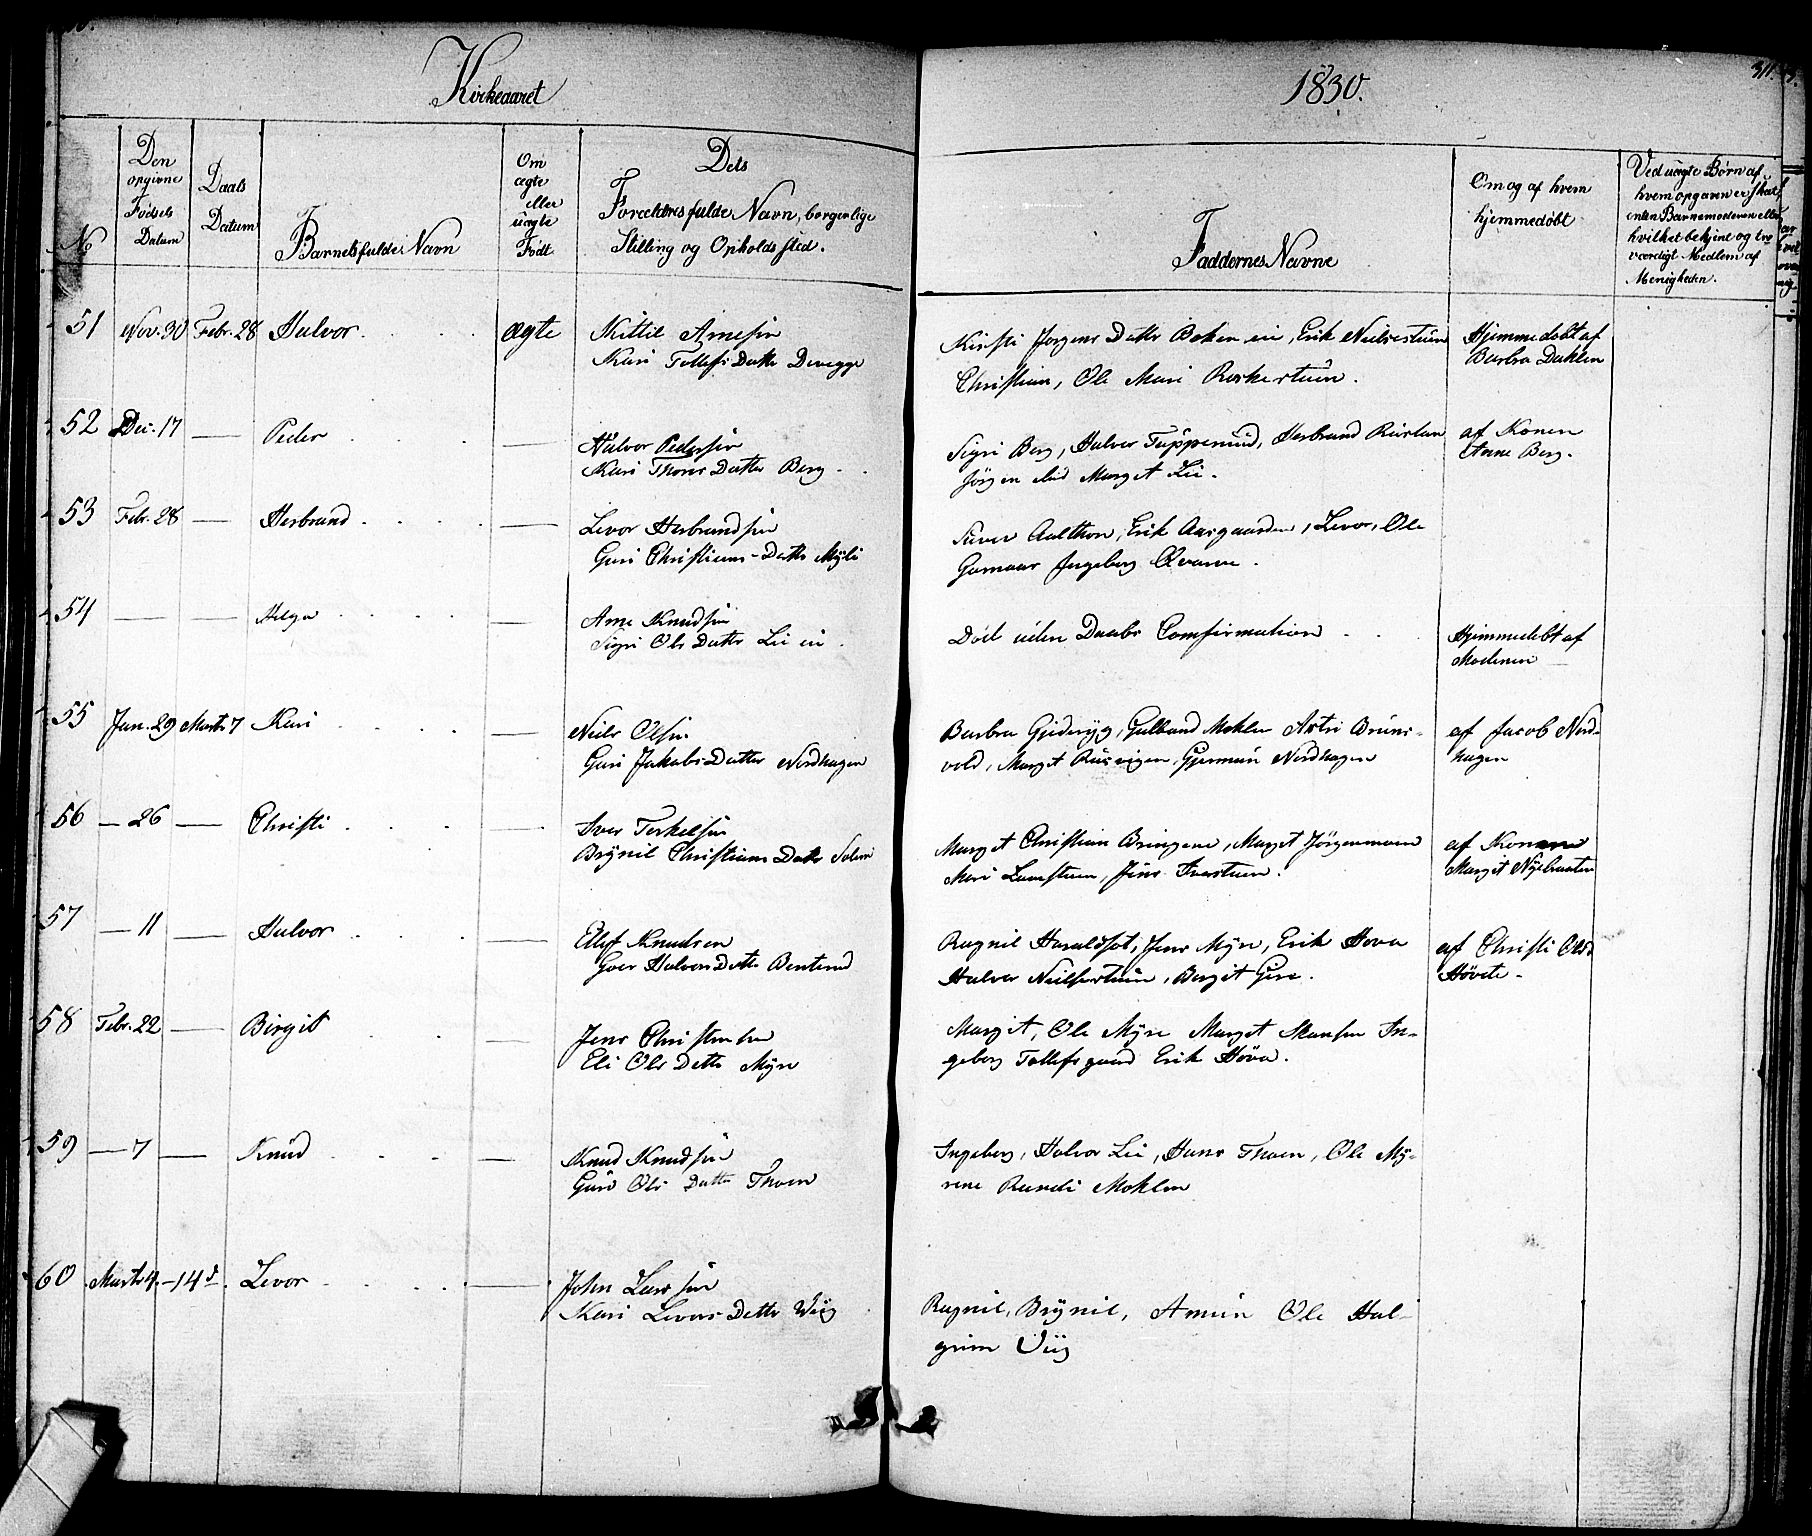 Kirkeaaret
1830.
311.
No
Den
opgivne
Fødsels
Datum
Daabs
Datum
Barnets fulde Navn
Om
ægte
eller
uægte
Født
Dets
Forældres fulde Navn, borgerlige
Stilling og Opholdssted.
Faddernes Navne
Om og af hvem
hjemmedøbt
Ved uægte Børn af
hvem opgaven er skeet
enten Barnemoderen eller
hvilket bekjent og tro
værdigt Medlem af
Menigheden.
51 Nov. 30 Febr. 28 Halvor ægte Kittil Arnesøn
Kari Tollefs Datter
Kirsti Jørgens Datter Erik
Christian, Ole Mari
Hjemmedøbt af
Barbra Dahlen
52 Dec. 17 — Peder — Halvor Pedersøn
Kari Thors Datter Berg
Sigri Berg, Halvor Herbrand
Jørgen Marget Lie.
af Konen
Anne Berg.
53 Febr. 28 — Herbrand — Levor Herbrandsøn
Guri Christians Datter Myli
Erik Aasgaarden, Levor, Ole
Ingeborg
54 — — Helga — Arne Knudsøn
Sigri Ols Datter Lie
Død uden Daabs Comfirmation
Hjemmedøbt af
Moderen
55 Jan. 29 Marts 7 Kari — Neils Olsøn
Guri Jakobs Datter Nordhagen
Barbra Gulbrand Moklen Astri Bruns-
vold, Marget Nordhagen
af Jacob Nord-
hagen
56 — 26 — Christi — Iver Terkelsøn
Brynil Christians Datter Solem
Marget Christian Bringene, Marget Jørgenmoen
Mari Jens Iverstuen.
af Konen
Margit Nyebraaten
57 — 11 — Halvor — Ellef Knudsen
Goer Halvors Datter Benterud
Ragnil Jens Myre, Erik Hova
Halvor Neilserstuen, Bergit
af Christi Ols D
Høvete
58 Febr. 22 — Birgit — Jens Christensen
Eli Ols Datter Myre
Margit, Ole Myre Marget In-
geborg Tollefsgaard Erik Høva.
59 — 7 — Knud — Knud Knudsøn
Guro Ols Datter Thoen
Ingeborg, Halvor Lie, Hans Thoen, Ole My-
rene Randi Moklen
60 Marts 4. — 14d. Levor — John Larssøn
Kari Levors Datter Wiig
Ragnil, Brynil, Amun Ole Hal-
grim Viig